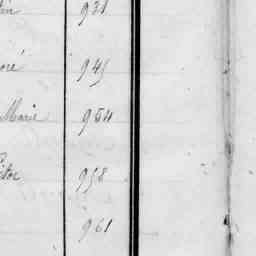 931
oré 945
Marie 954
ctor 958
961